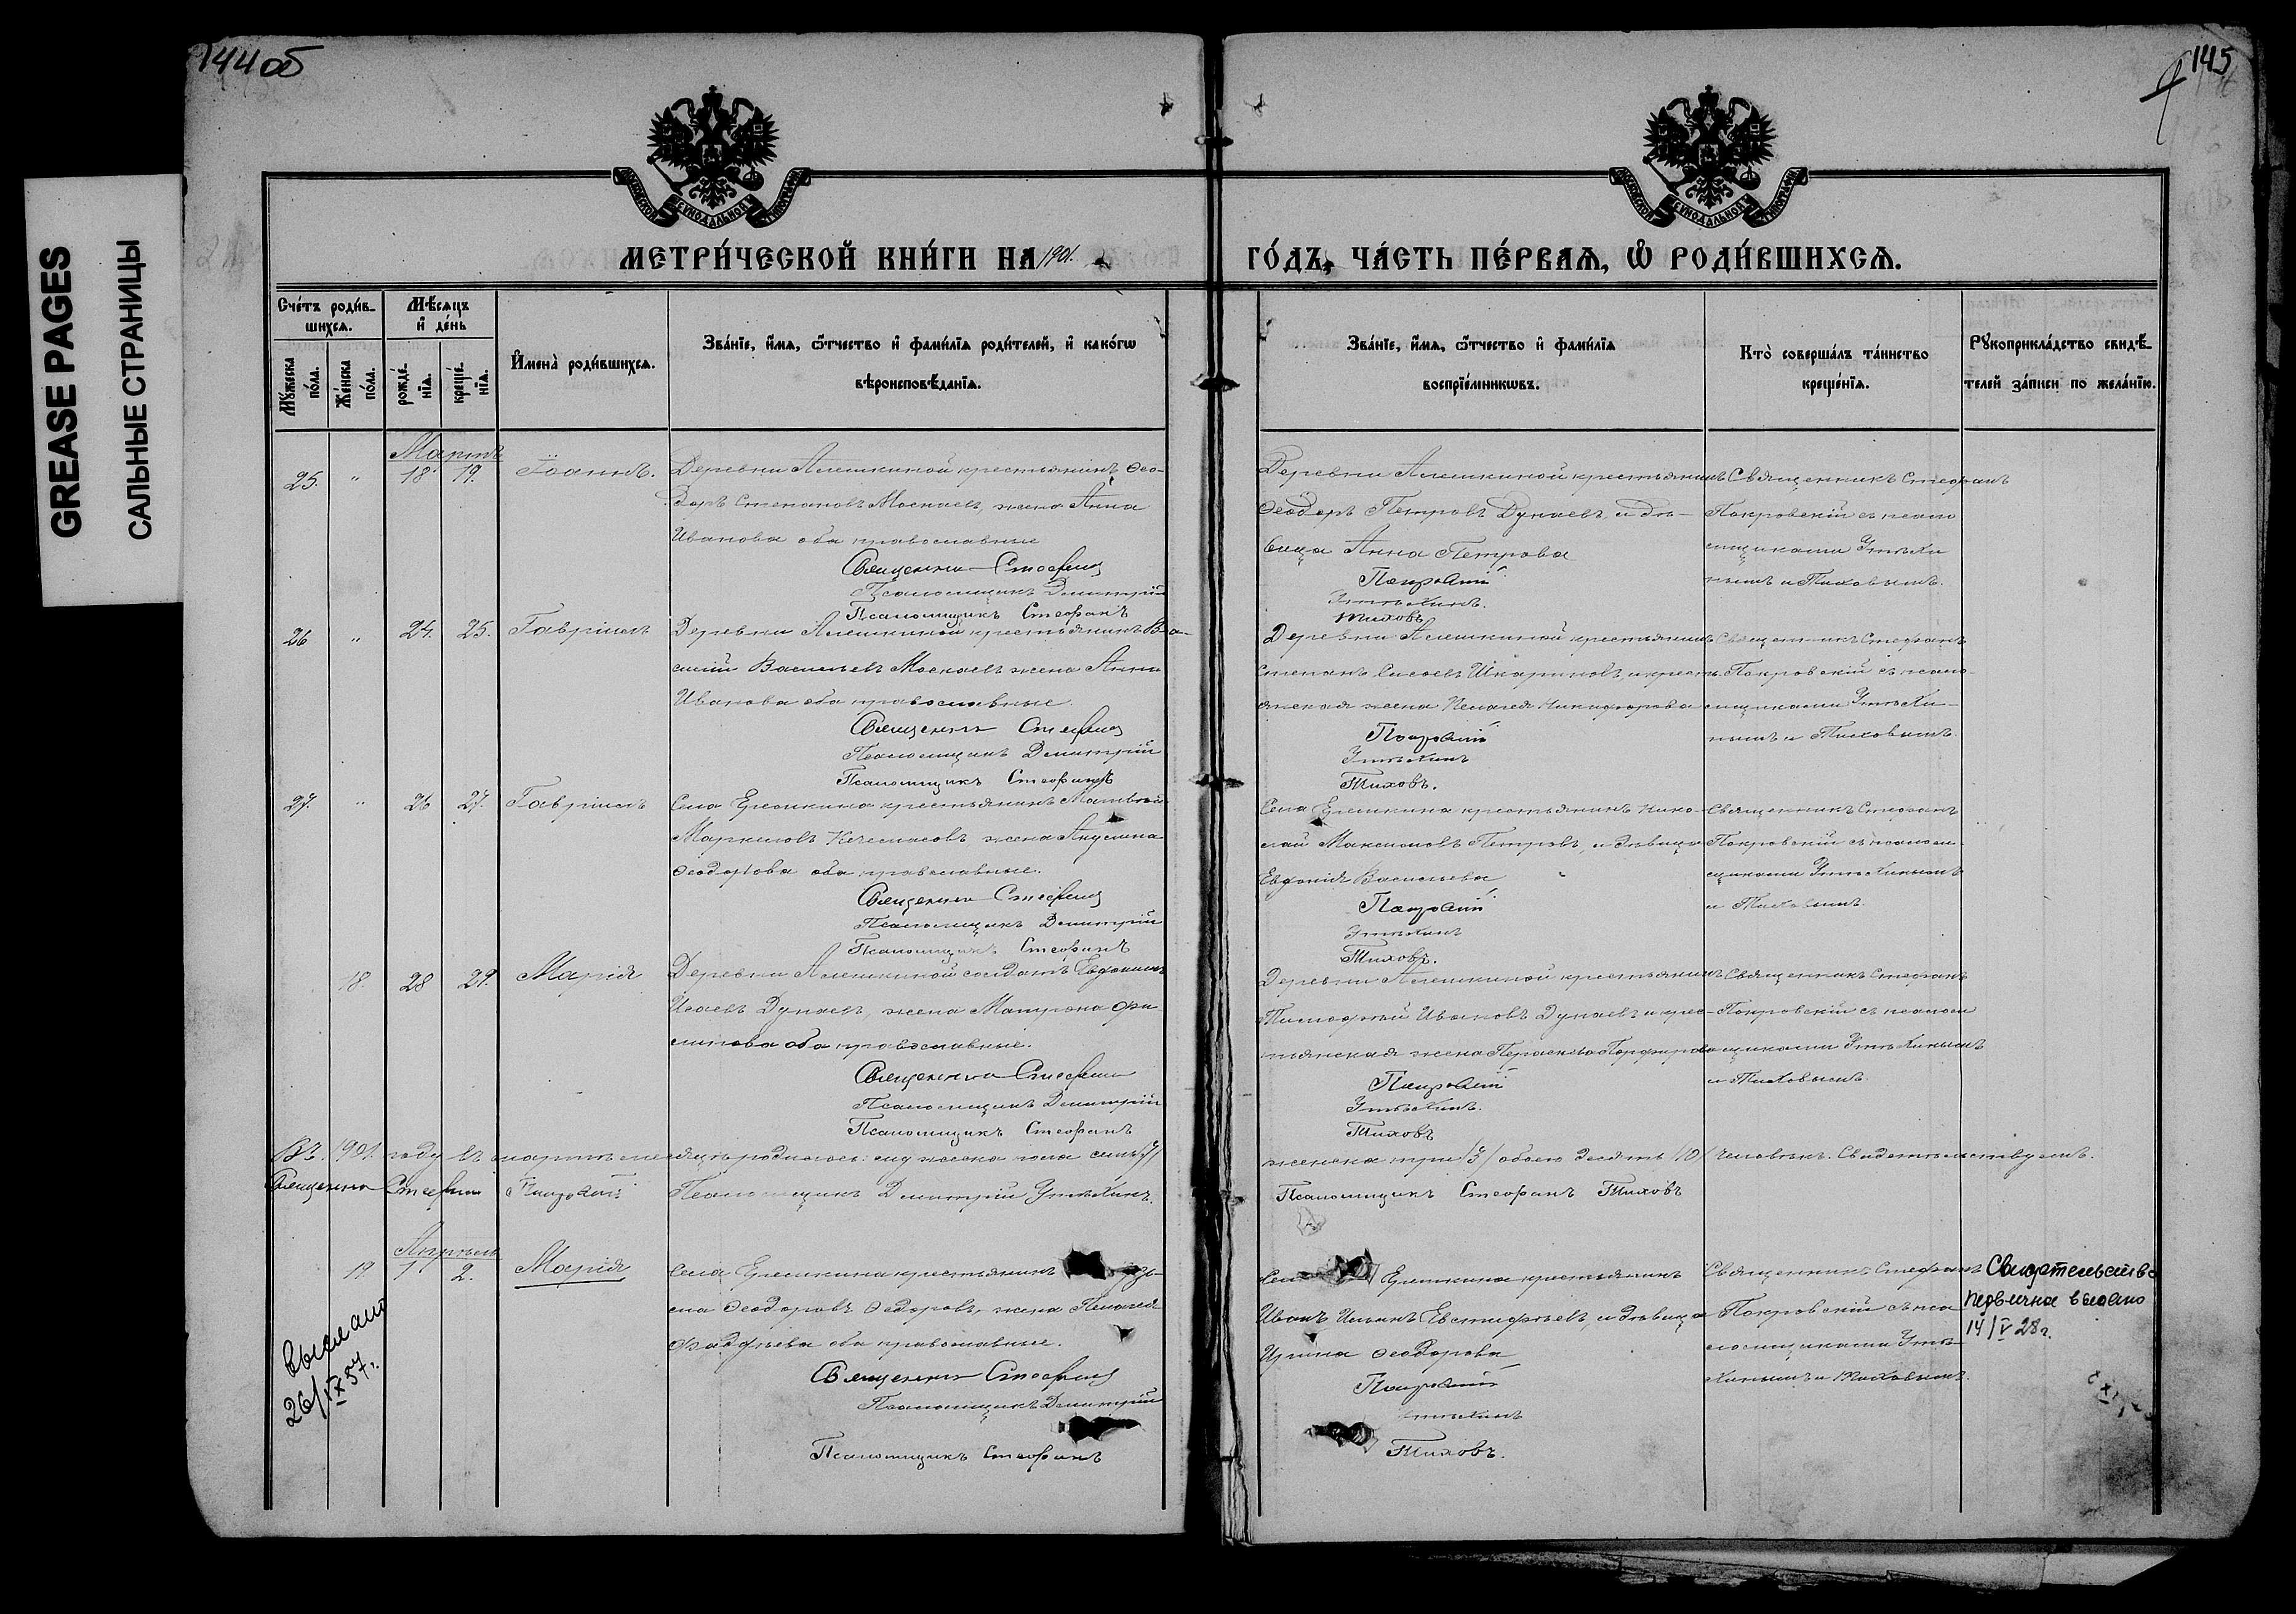 144 об
145
GREASE PAGES
САЛЬНЫЕ СТРАНИЦЫ
МЕТРИ́ЧЕСКОЙ КНИ́ГИ НА 1901.
ГО́ДЪ, ЧА́СТЬ ПЕ́РВАЯ, Ѡ РОДИ́ВШИХСЯ.
Сче́тъ роди́в-
шихся.
Мѣ́сяцъ
и҆ де́нь
Мꙋ́жеска по́ла.
Же́нска по́ла.
рожде́-
нїя.
креще́-
нїя.
И҆мена̀ роди́вшихся.
Зва́нїе, и҆́мя, ѻ҆́тчество и҆ фами́лїя роди́телей, и҆ како́гѡ
вѣроисповѣ́данїя.
Зва́нїе, и҆́мя, ѻ҆́тчество и҆ фами́лїя
воспрїе́мниковъ.
Кто̀ соверша́лъ та́инство
креще́нїя.
Рꙋкоприкла́дство свидѣ́-
телей за́писи по жела́нїю.
Мартъ
25. " 18. 19. Іоаннъ.
Деревни Алешкиной крестьянинъ Ѳео-
доръ Степановъ Москаевъ, жена Анна
Иванова оба православные
Священникъ Стефанъ
Псаломщикъ Димитрій
Псаломщикъ Стефанъ
Деревни Алешкиной крестьянинъ
Ѳеодоръ Петровъ Дунаевъ, и дѣ-
вица Анна Петрова
Покровскій
Утѣхинъ.
Тиховъ
Священникъ Стефанъ
Покровскій съ псалом
щиками Утѣхи
нымъ и Тиховымъ.
26 " 24. 25. Гавріилъ
Деревни Алешкиной крестьянинъ Ва-
силій Васильевъ Москаевъ жена Анна
Иванова оба православные.
Священникъ Стефанъ
Псаломщикъ Димитрій
Псаломщикъ Стефанъ
Деревни Алешкиной крестьянинъ
Степанъ Сысоевъ Шкариновъ, и кресть
янская жена Пелагея Никифорова
Покровскій
Утѣхинъ
Тиховъ.
Священникъ Стефанъ
Покровскій съ псалом
щиками Утѣхи-
нымъ и Тиховымъ.
27. " 26 27. Гавріилъ
Села Ерёмкина крестьянинъ Матвѣй
Маркеловъ жена Акулина
Ѳеодорова оба православные.
Священникъ Стефанъ
Псаломщикъ Димитрій
Псаломщикъ Стефанъ
Села Ерёмкина крестьянинъ Нико-
лай Максимовъ Петровъ, и дѣвица
Евдокія Васильева
Покровскій
Утѣхинъ
Тиховъ.
Священникъ Стефанъ
Покровскій съ псалом
щиками Утѣхинымъ
и Тиховымъ.
18. 28 29. Марія
Деревни Алешкиной солдатъ Евдокимъ
Исаевъ Дунаевъ, жена Матрона Фи
липова оба православные.
Священникъ Стефанъ
Псаломщикъ Димитрій
Псаломщикъ Стефанъ
Деревни Алешкиной крестьянинъ
Тимофей Ивановъ Дунаевъ и крес-
тьянская жена Параскева Порфирова
Покровскій
Утѣхинъ.
Тиховъ
Священникъ Стефанъ
Покровскій съ псалом
щиками Утѣхинымъ
и Тиховымъ.
Въ 1901. году въ мартѣ мѣсяцѣ родилось: мужеска пола семь /7/
женска три /3/ обоего десять /10/ человѣкъ. Свидѣтельствуемъ.
Священникъ Стефанъ Покровскій Псаломщикъ Димитрій Утѣхинъ.
Псаломщикъ Стефанъ Тиховъ
Апрѣль
19 1 2. Марія
Села Ерёмкина крестьянинъ
ма Ѳеодоровъ Ѳедоровъ, жена Пелагея
Фадѣева оба православные.
Священникъ Стефанъ
Псаломщикъ Димитрій
Псаломщикъ Стефанъ
Ерёмкина крестьянинъ
Иванъ Ильинъ Евстифѣевъ, и дѣвица
Ирина Ѳеодорова
Покровскій
Утѣхинъ
Тиховъ.
Священникъ Стефанъ
Покровскій съ пса
ломщиками Утѣ-
хинымъ и Тиховымъ.
Свидетельство
первичное выдано
14/V 28 г.
выслано
26/IX 57 г.